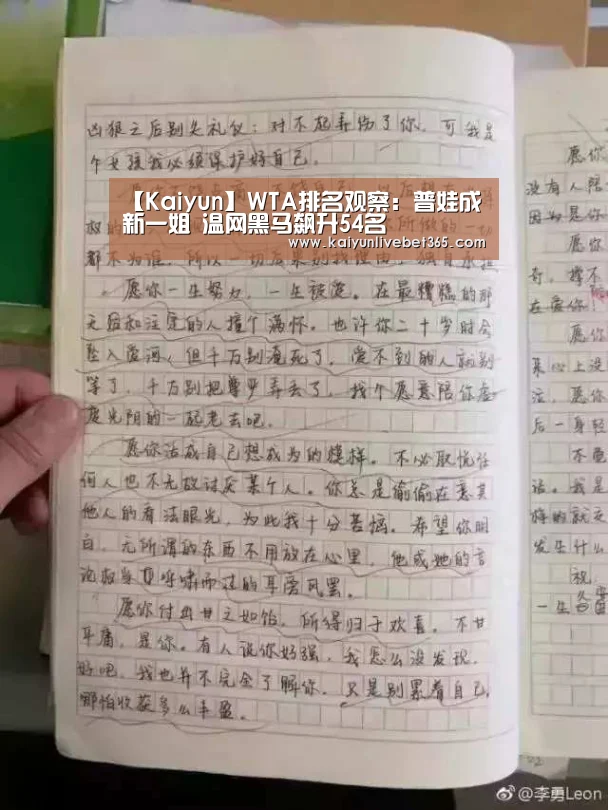 凶狠之后别失礼仪：对不起弄伤了你，可我是
个女孩我必须保护好自己。
【Kaiyun】WTA排名观察：普娃成
新一姐 温网黑马飙升54名
www.kaiyunlivebet365.com
都不为谁，所以一切后果别找理由，独自承担
。愿你一生努力，一生被爱。在最糟糕的那
天后和注定的人撞个满怀。也许你二十岁时会
坠入爱河，但千万别淹死了，爱不到的人就别
等了，千万别把尊步弄丢了，找个愿意陪你虚
度光阴的一起老去吧。
愿你活成自己想成为的模样。不必取悦任
何人也不无故讨厌某个人。你总是偷偷在意其
他人的看法眼光，为此我十分苦恼。希望你明
白，无所谓的东西不用放在心里，他或她的言
论权当呼啸而过的耳旁风罢。
愿你付出甘之如饴，所得归于欢喜。不甘
平庸，是你。有人说你好强，我怎么没发现，
好吧，我也并不完全了解你。只是别累着自己，
哪怕收获多么丰盈。
愿你
没有人陪
因为是你
愿你
奇，撑不
在爱你
愿你
来心上没
注，愿你
后一身轻
不要
话。我是
样的就交
发生什么
祝
一生
@李勇Leon